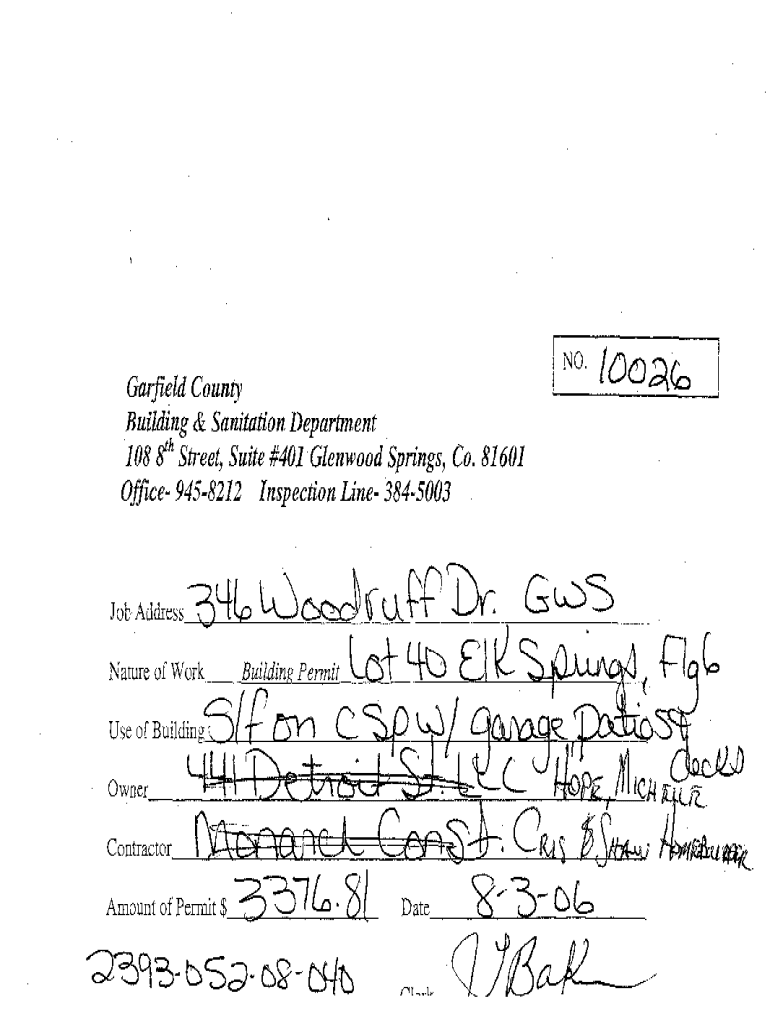 NO. 10026
Garfield County
Building & Sanitation Department
108 8th Street, Suite #401 Glenwood Springs, Co. 81601
Office- 945-8212 Inspection Line- 384-5003
Job Address 346 Woodruff Dr. GWS
Nature of Work Building Permit Lot 40 Elk Springs, Flg 6
Use of Building S/f on CSPW/ garage patios &
decks
Owner 441 Detroit St. LLC HOPE, MICHELLE
Contractor Monarch Const. CRIS & SHAW HOMEBUILDER
Amount of Permit $ 3376.81 Date 8-3-06
2393-052-08-040 Clerk